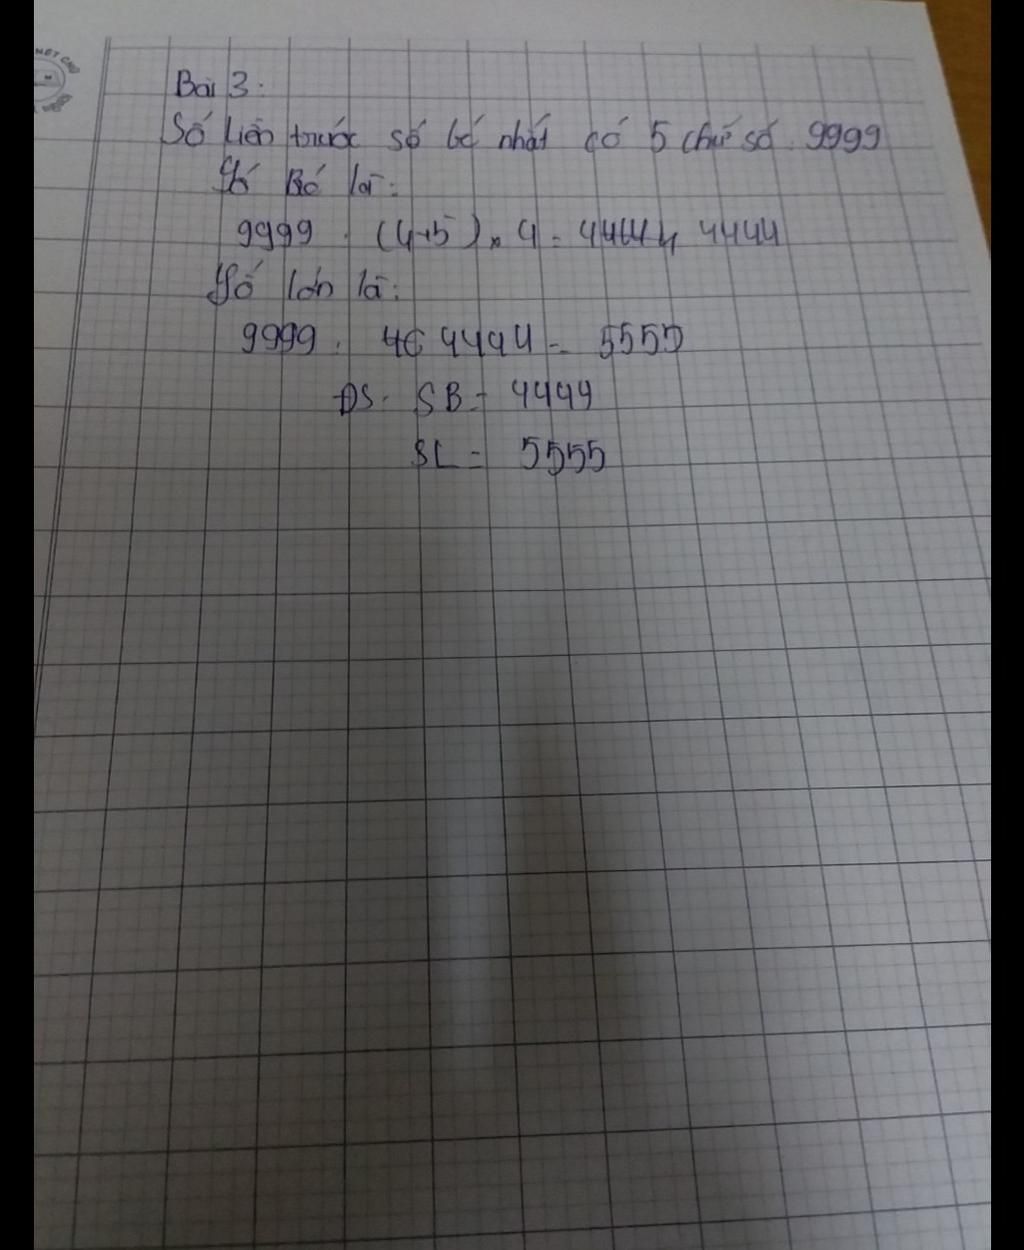 Bài 3:
Số liền trước số bé nhất có 5 chữ số: 9999
Số Bé là:
9999 : (4+5) x 4 = 4444
Số lớn là:
9999 - 4444 = 5555
ĐS: SB = 4444
SL = 5555